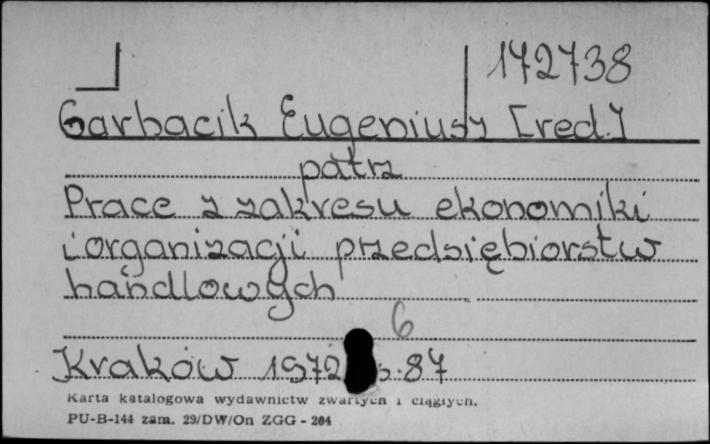 172738
Garbacik Eugeniusz [red.]
patrz
Prace z zakresu ekonomiki
i organizacji przedsiębiorstw
handlowych
6
Kraków 1972 s. 87
Karta katalogowa wydawnictw zwartych i ciągłych.
PU-B-144 zam. 29/DW/On ZGG - 204